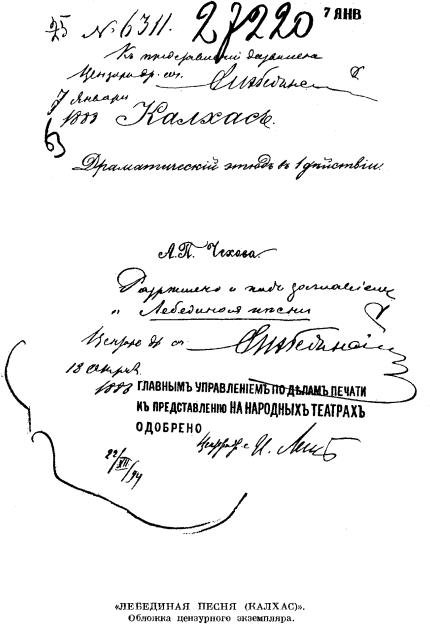 № 6311. 27220 7 ЯНВ
Къ представленію дозволено
Цензоръ др. соч.
7 января
1888 Калхасъ.
Драматическій этюдъ въ 1 дѣйствіи.
А. П. Чехова.
Разрешено и подъ заглавіемъ
„Лебединая пѣсня
Цензоръ др. соч.
1888
ГЛАВНЫМЪ УПРАВЛЕНІЕМЪ ПО ДѢЛАМЪ ПЕЧАТИ
КЪ ПРЕДСТАВЛЕНІЮ НА НАРОДНЫХЪ ТЕАТРАХЪ
ОДОБРЕНО
22/XII/94
«ЛЕБЕДИНАЯ ПЕСНЯ (КАЛХАС)».
Обложка цензурного экземпляра.